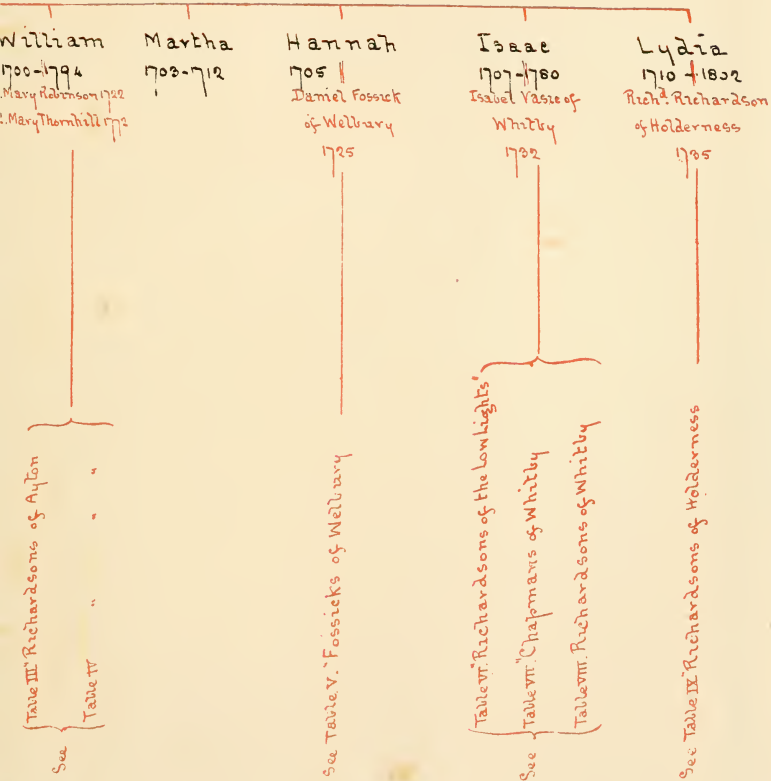 William
1700-1794
1. Mary Robinson 1722
2. Mary Thornhill 1772
See
Table III "Richardsons of Ayton
Table IV " " "
Martha
1703-1712
Hannah
1705
Daniel Fossick
of Welbury
1725
See Table V. "Fossicks of Welbury
Isaac
1707-1780
Isabel Vasie of
Whitby
1732
See
Table VI. "Richardsons of the Low Lights"
Table VII. "Chapmans of Whitby
Table VIII. Richardsons of Whitby
Lydia
1710-1802
Richd. Richardson
of Holderness
1735
See Table IX "Richardsons of Holderness